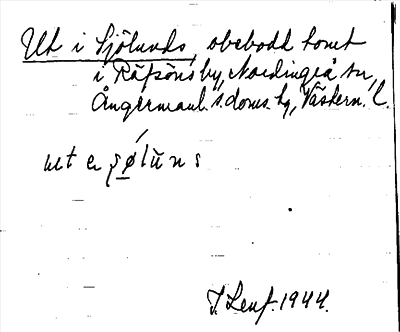 Ut i Sjölunds, obebodd tomt
i Räfsöns by, Nordingrå sn,
Ångermanl. s. doms. hg, Västern. l.
ut e sø̱lun s
T. Lenf. 1944.